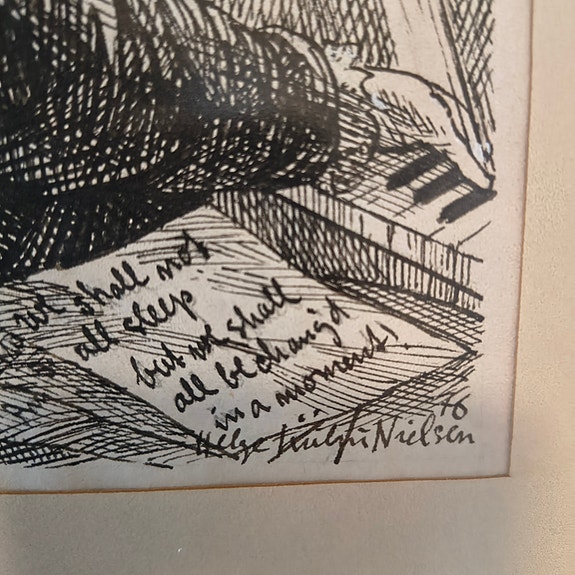 we shall not
all sleep
but we shall
all be chang'd
in a moment!
76
Helge Kühn Nielsen